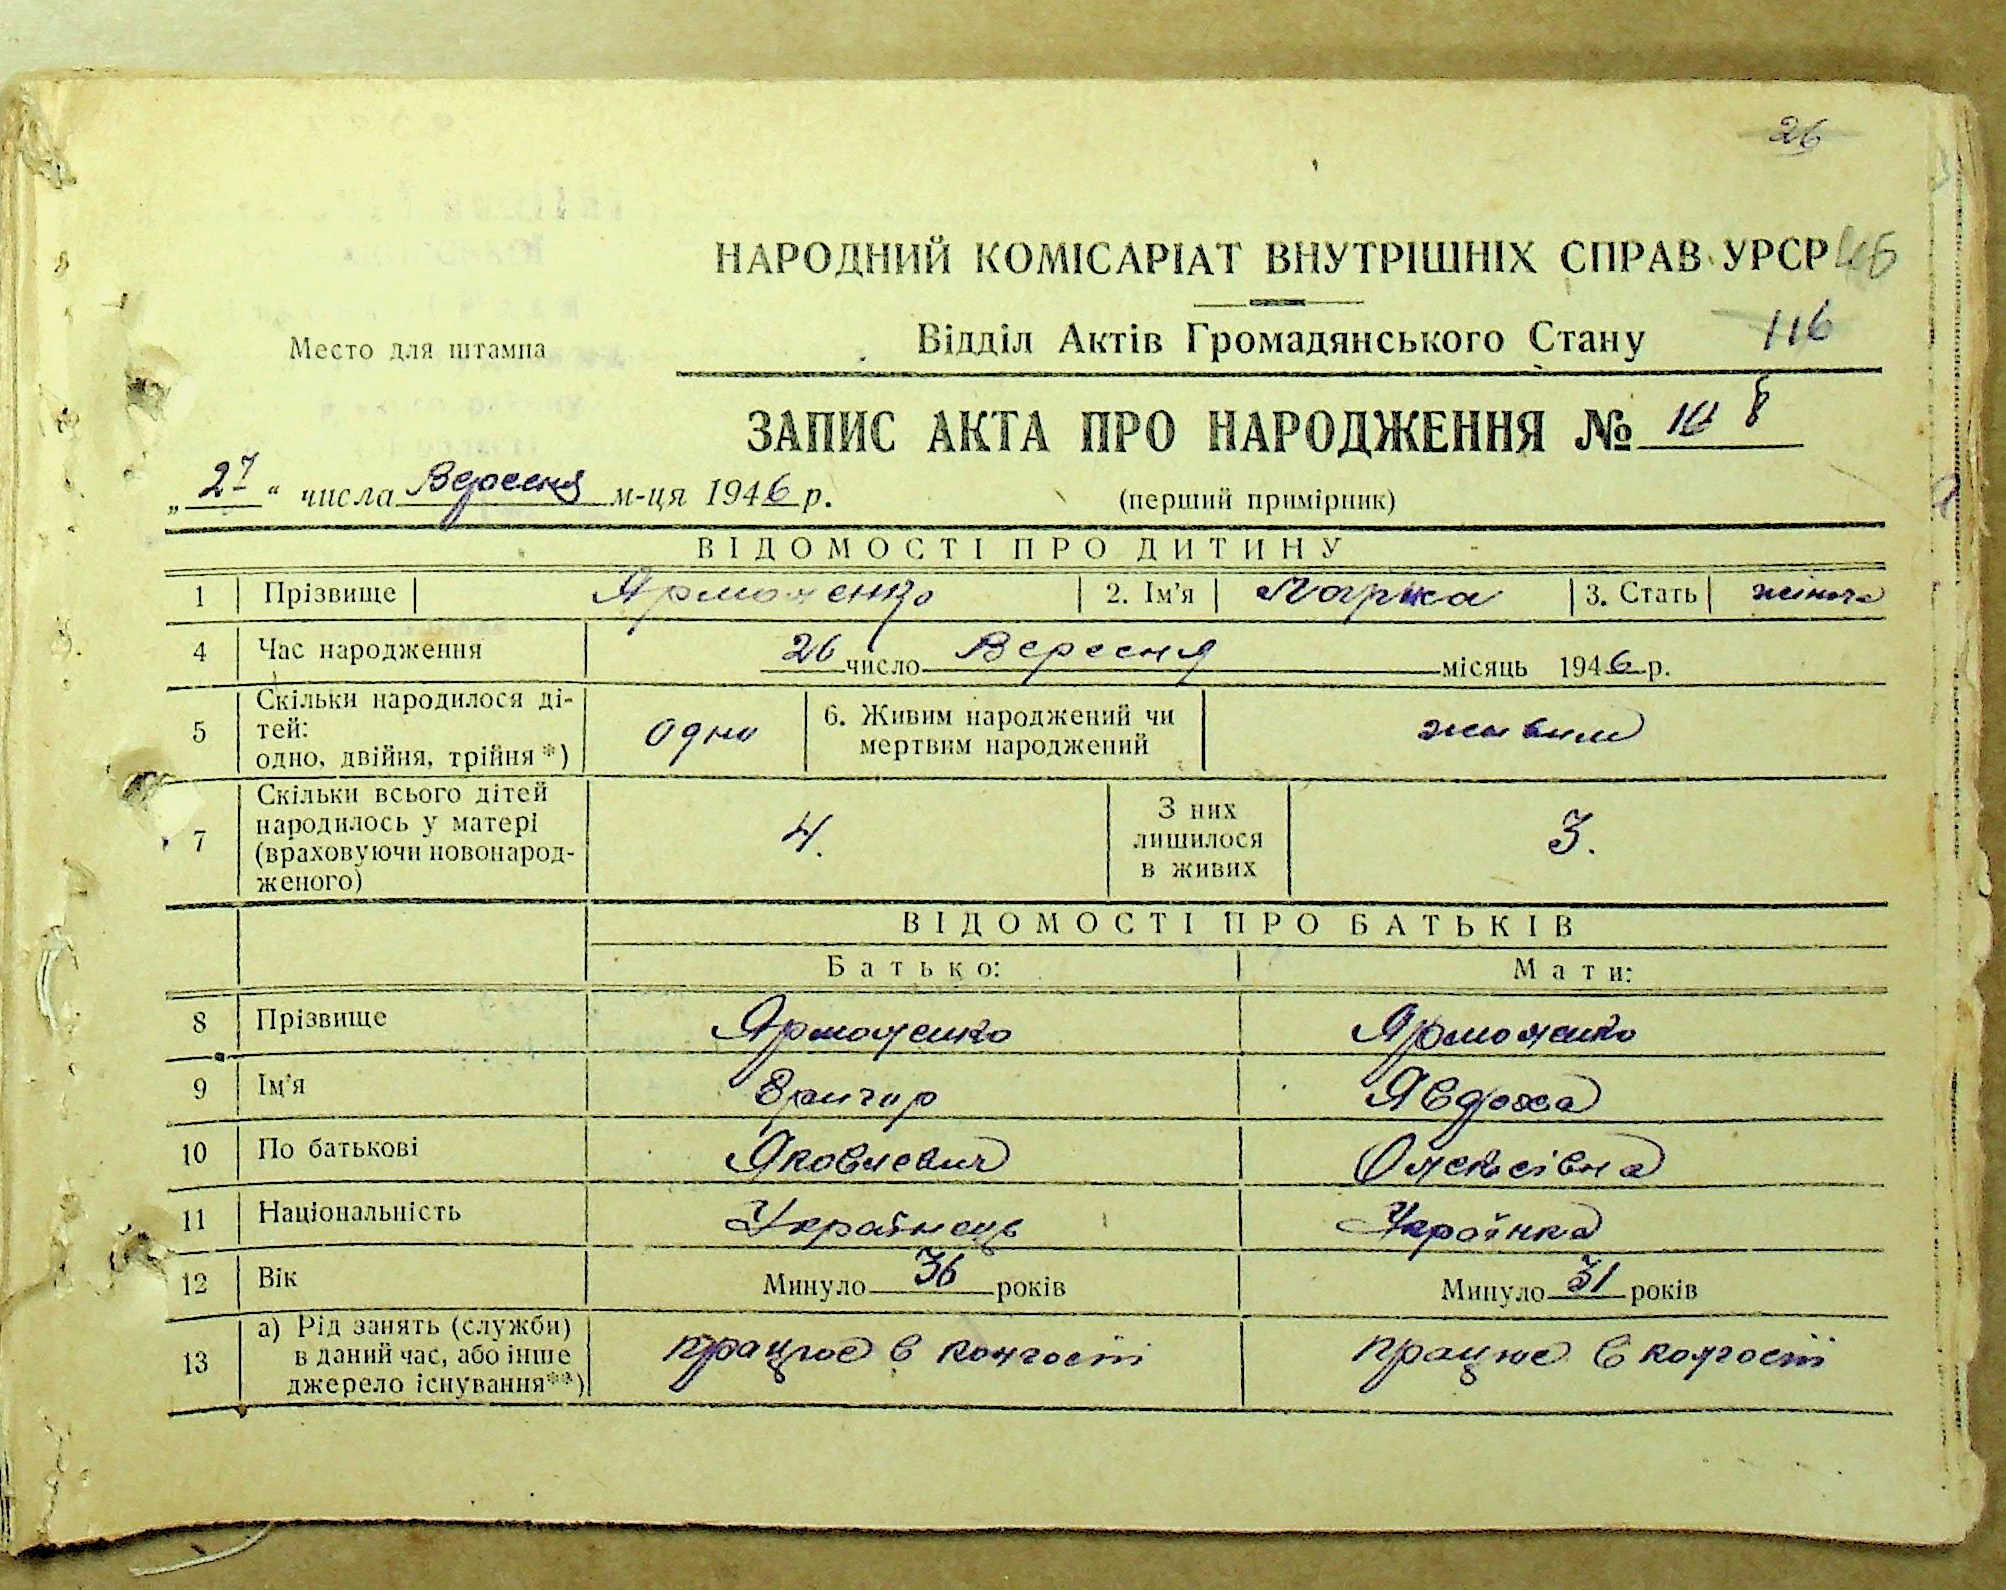 26
НАРОДНИЙ КОМІСАРІАТ ВНУТРІШНІХ СПРАВ УРСР
Место для штампа
Відділ Актів Громадянського Стану 116
ЗАПИС АКТА ПРО НАРОДЖЕННЯ № 8
„27“ числа Вересня м-ця 1946 р. (перший примірник)
ВІДОМОСТІ ПРО ДИТИНУ
1 Прізвище Ярмоленко 2. Ім'я Марія 3. Стать жіноча
4 Час народження 26 число Вересня місяць 1946 р.
5 Скільки народилося ді-
тей:
одно, двійня, трійня*) одно 6. Живим народжений чи
мертвим народжений живим
7 Скільки всього дітей
народилось у матері
(враховуючи новонарод-
женого) 4. З них
лишилося
в живих 3.
ВІДОМОСТІ ПРО БАТЬКІВ
Батько: Мати:
8 Прізвище Ярмоленко Ярмоленко
9 Ім'я Григор Явдоха
10 По батькові Яковлевич Олексіівна
11 Національність Українець Українка
12 Вік Минуло 36 років Минуло 31 років
13 а) Рід занять (служби)
в даний час, або інше
джерело існування**) працює в колгоспі працює в колгоспі